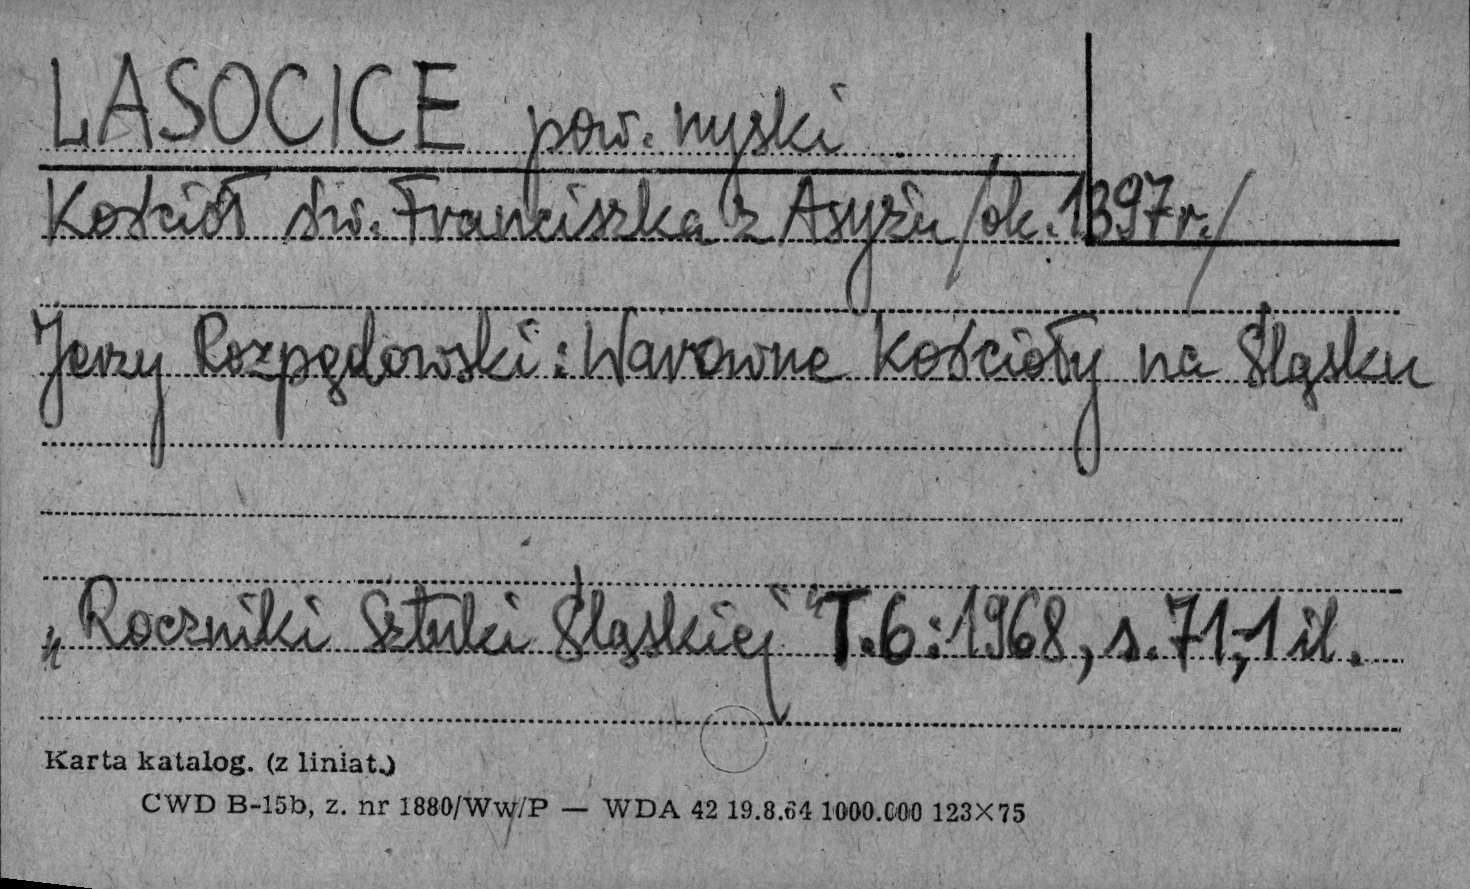 LASOCICE pow. nyski
Kościół św. Franciszka z Asyżu /ok. 1397r./
Jerzy Rozpędowski: Warowne Kościoły na Śląsku
„Roczniki Sztuki Śląskiej" T.6:1968, s.71,-1 il.
Karta katalog. (z liniat.)
CWD B-15b, z. nr 1880/Ww/P — WDA 42 19.8.64 1000.000 123×75